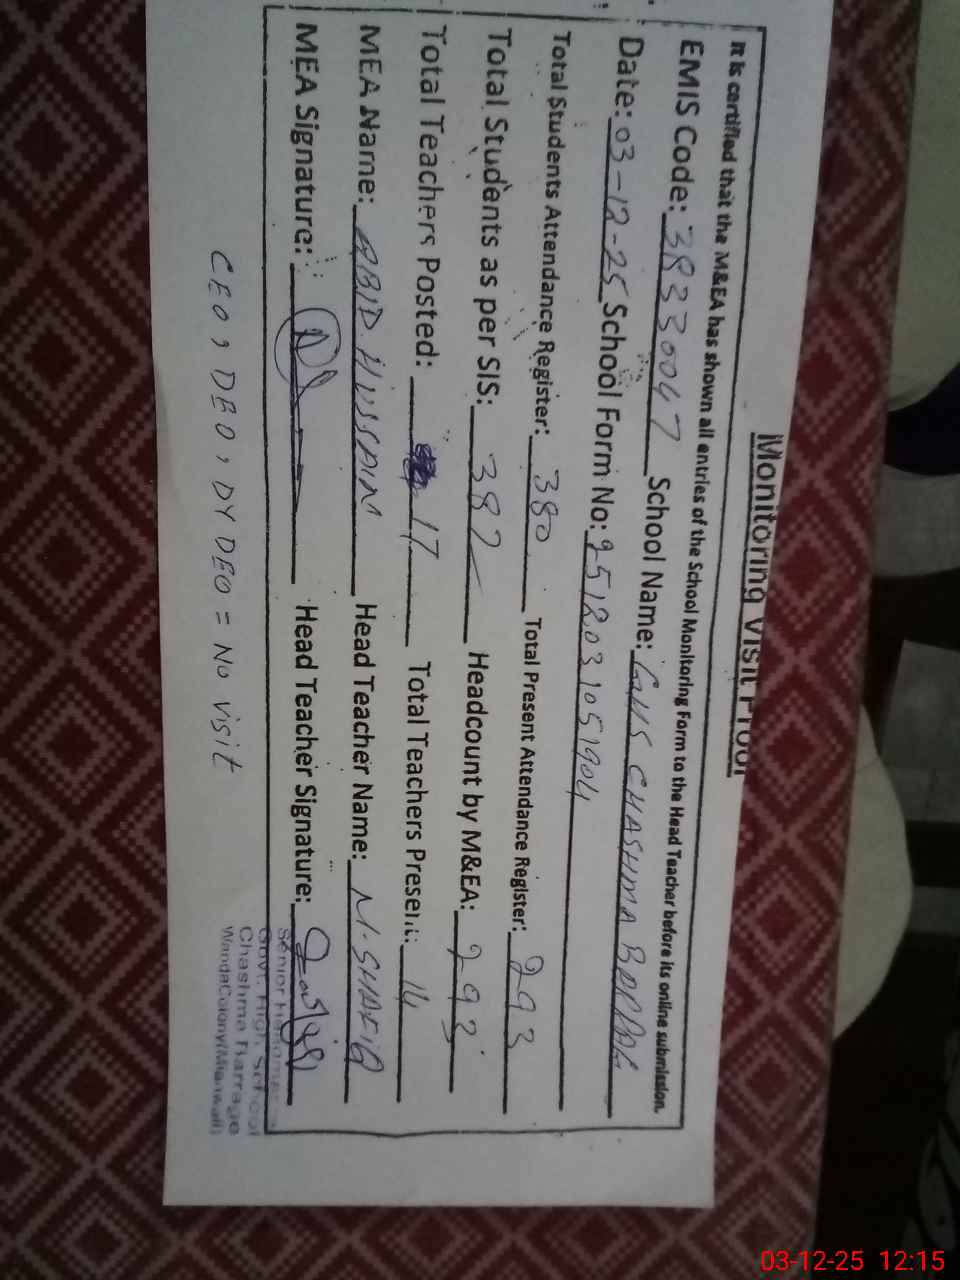 Monitoring Visit Proof
It is certified that the M&EA has shown all entries of the School Monitoring Form to the Head Teacher before its online submission.
EMIS Code: 38330047 School Name: GHS CHASHMA BARRAG
Date: 03-12-25 School Form No: 2512031051904
Total Students Attendance Register: 380 Total Present Attendance Register: 293
Total Students as per SIS: 382 Headcount by M&EA: 293
Total Teachers Posted: 17 Total Teachers Present: 14
MEA Name: ABID HUSSAIN Head Teacher Name: M. SHAFIQ
MEA Signature: Head Teacher Signature:
Senior Headmaster
Govt. High School
Chashma Barrage
WandaColony(Mianwali)
CEO, DEO, DY DEO = No visit
03-12-25 12:15